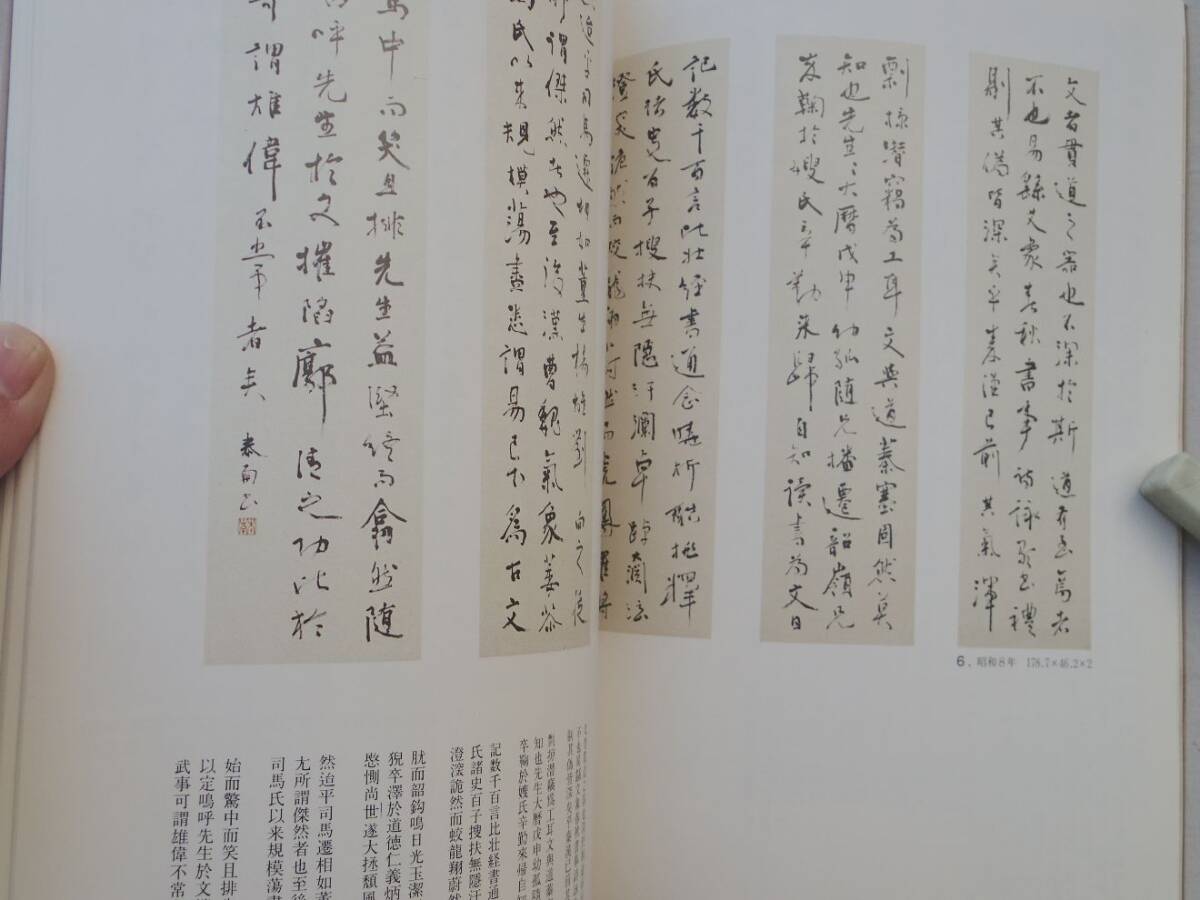 文者貫道之器也不深於斯道有至焉者
不也易繇爻象春秋書事詩詠歌書禮
剔其偽皆深矣乎秦漢已前其氣渾
6．昭和8年　178.7×46.2×2
剽掠潛竊為工耳文與道蓁塞固然莫
知也先生々大曆戊申幼孤隨兄播遷韶嶺兄
卒鞠於嫂氏辛勤来歸自知讀書為文日
記数千百言比壮經書通念曉析酷排釋
氏諸史百子搜抉無隱汗瀾卓踔奫泫
迨乎司馬遷相如董生揚雄劉向之徒
所謂傑然者也至後漢曹魏氣象萎薾
馬氏以来規模蕩盡悉謂易已下為古文
驚中而笑且排先生益堅終而翕然隨
嗚呼先生於文摧陷廓清之功比於
可謂雄偉不常者矣
知也先生大暦戊申幼孤随
卒鞠於嫂氏辛勤来帰自知
記数千百言比壮経書通
氏諸史百子捜抉無隠汗
澄深詭然而蛟龍翔蔚然
肬而韶鈞鳴日光玉潔
猊卒澤於道徳仁義炳
愍惻尚世遂大拯頽風
然迨平司馬遷相如董
尤所謂傑然者也至後
司馬氏以来規模蕩尽
始而驚中而笑且排
以定嗚呼先生於文
武事可謂雄偉不常